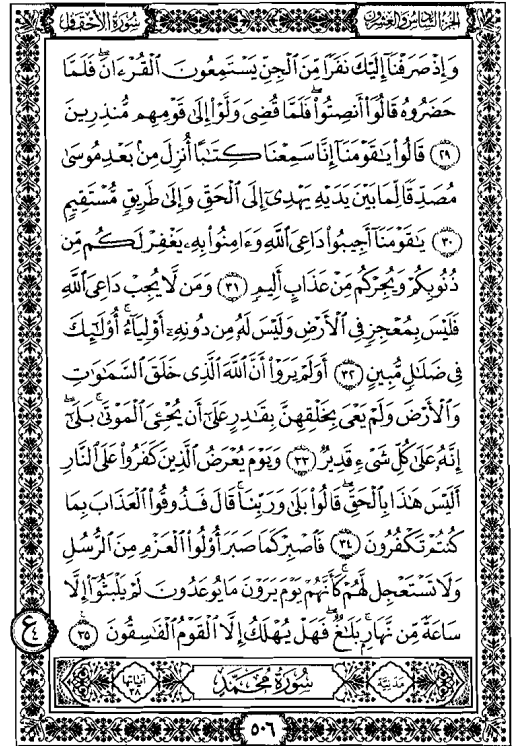 الجزء السادس والعشرون
سورة الأحقاف
وَإِذْ صَرَفْنَآ إِلَيْكَ نَفَرًا مِّنَ ٱلْجِنِّ يَسْتَمِعُونَ ٱلْقُرْءَانَ فَلَمَّا
حَضَرُوهُ قَالُوٓا۟ أَنصِتُوا۟ ۖ فَلَمَّا قُضِىَ وَلَّوْا۟ إِلَىٰ قَوْمِهِم مُّنذِرِينَ
﴿٢٩﴾ قَالُوا۟ يَٰقَوْمَنَآ إِنَّا سَمِعْنَا كِتَٰبًا أُنزِلَ مِنۢ بَعْدِ مُوسَىٰ
مُصَدِّقًا لِّمَا بَيْنَ يَدَيْهِ يَهْدِىٓ إِلَى ٱلْحَقِّ وَإِلَىٰ طَرِيقٍ مُّسْتَقِيمٍ
﴿٣٠﴾ يَٰقَوْمَنَآ أَجِيبُوا۟ دَاعِىَ ٱللَّهِ وَءَامِنُوا۟ بِهِۦ يَغْفِرْ لَكُم مِّن
ذُنُوبِكُمْ وَيُجِرْكُم مِّنْ عَذَابٍ أَلِيمٍ ﴿٣١﴾ وَمَن لَّا يُجِبْ دَاعِىَ ٱللَّهِ
فَلَيْسَ بِمُعْجِزٍ فِى ٱلْأَرْضِ وَلَيْسَ لَهُۥ مِن دُونِهِۦٓ أَوْلِيَآءُ ۚ أُو۟لَٰٓئِكَ
فِى ضَلَٰلٍ مُّبِينٍ ﴿٣٢﴾ أَوَلَمْ يَرَوْا۟ أَنَّ ٱللَّهَ ٱلَّذِى خَلَقَ ٱلسَّمَٰوَٰتِ
وَٱلْأَرْضَ وَلَمْ يَعْىَ بِخَلْقِهِنَّ بِقَٰدِرٍ عَلَىٰٓ أَن يُحْـِۧىَ ٱلْمَوْتَىٰ ۚ بَلَىٰٓ
إِنَّهُۥ عَلَىٰ كُلِّ شَىْءٍ قَدِيرٌ ﴿٣٣﴾ وَيَوْمَ يُعْرَضُ ٱلَّذِينَ كَفَرُوا۟ عَلَى ٱلنَّارِ
أَلَيْسَ هَٰذَا بِٱلْحَقِّ ۖ قَالُوا۟ بَلَىٰ وَرَبِّنَا ۚ قَالَ فَذُوقُوا۟ ٱلْعَذَابَ بِمَا
كُنتُمْ تَكْفُرُونَ ﴿٣٤﴾ فَٱصْبِرْ كَمَا صَبَرَ أُو۟لُوا۟ ٱلْعَزْمِ مِنَ ٱلرُّسُلِ
وَلَا تَسْتَعْجِل لَّهُمْ ۚ كَأَنَّهُمْ يَوْمَ يَرَوْنَ مَا يُوعَدُونَ لَمْ يَلْبَثُوٓا۟ إِلَّا
سَاعَةً مِّن نَّهَارٍۭ ۚ بَلَٰغٌ ۚ فَهَلْ يُهْلَكُ إِلَّا ٱلْقَوْمُ ٱلْفَٰسِقُونَ ﴿٣٥﴾
ع ٤
مدنية
سُورَةُ مُحَمَّدٍ
آياتها ٣٨
٥٠٦